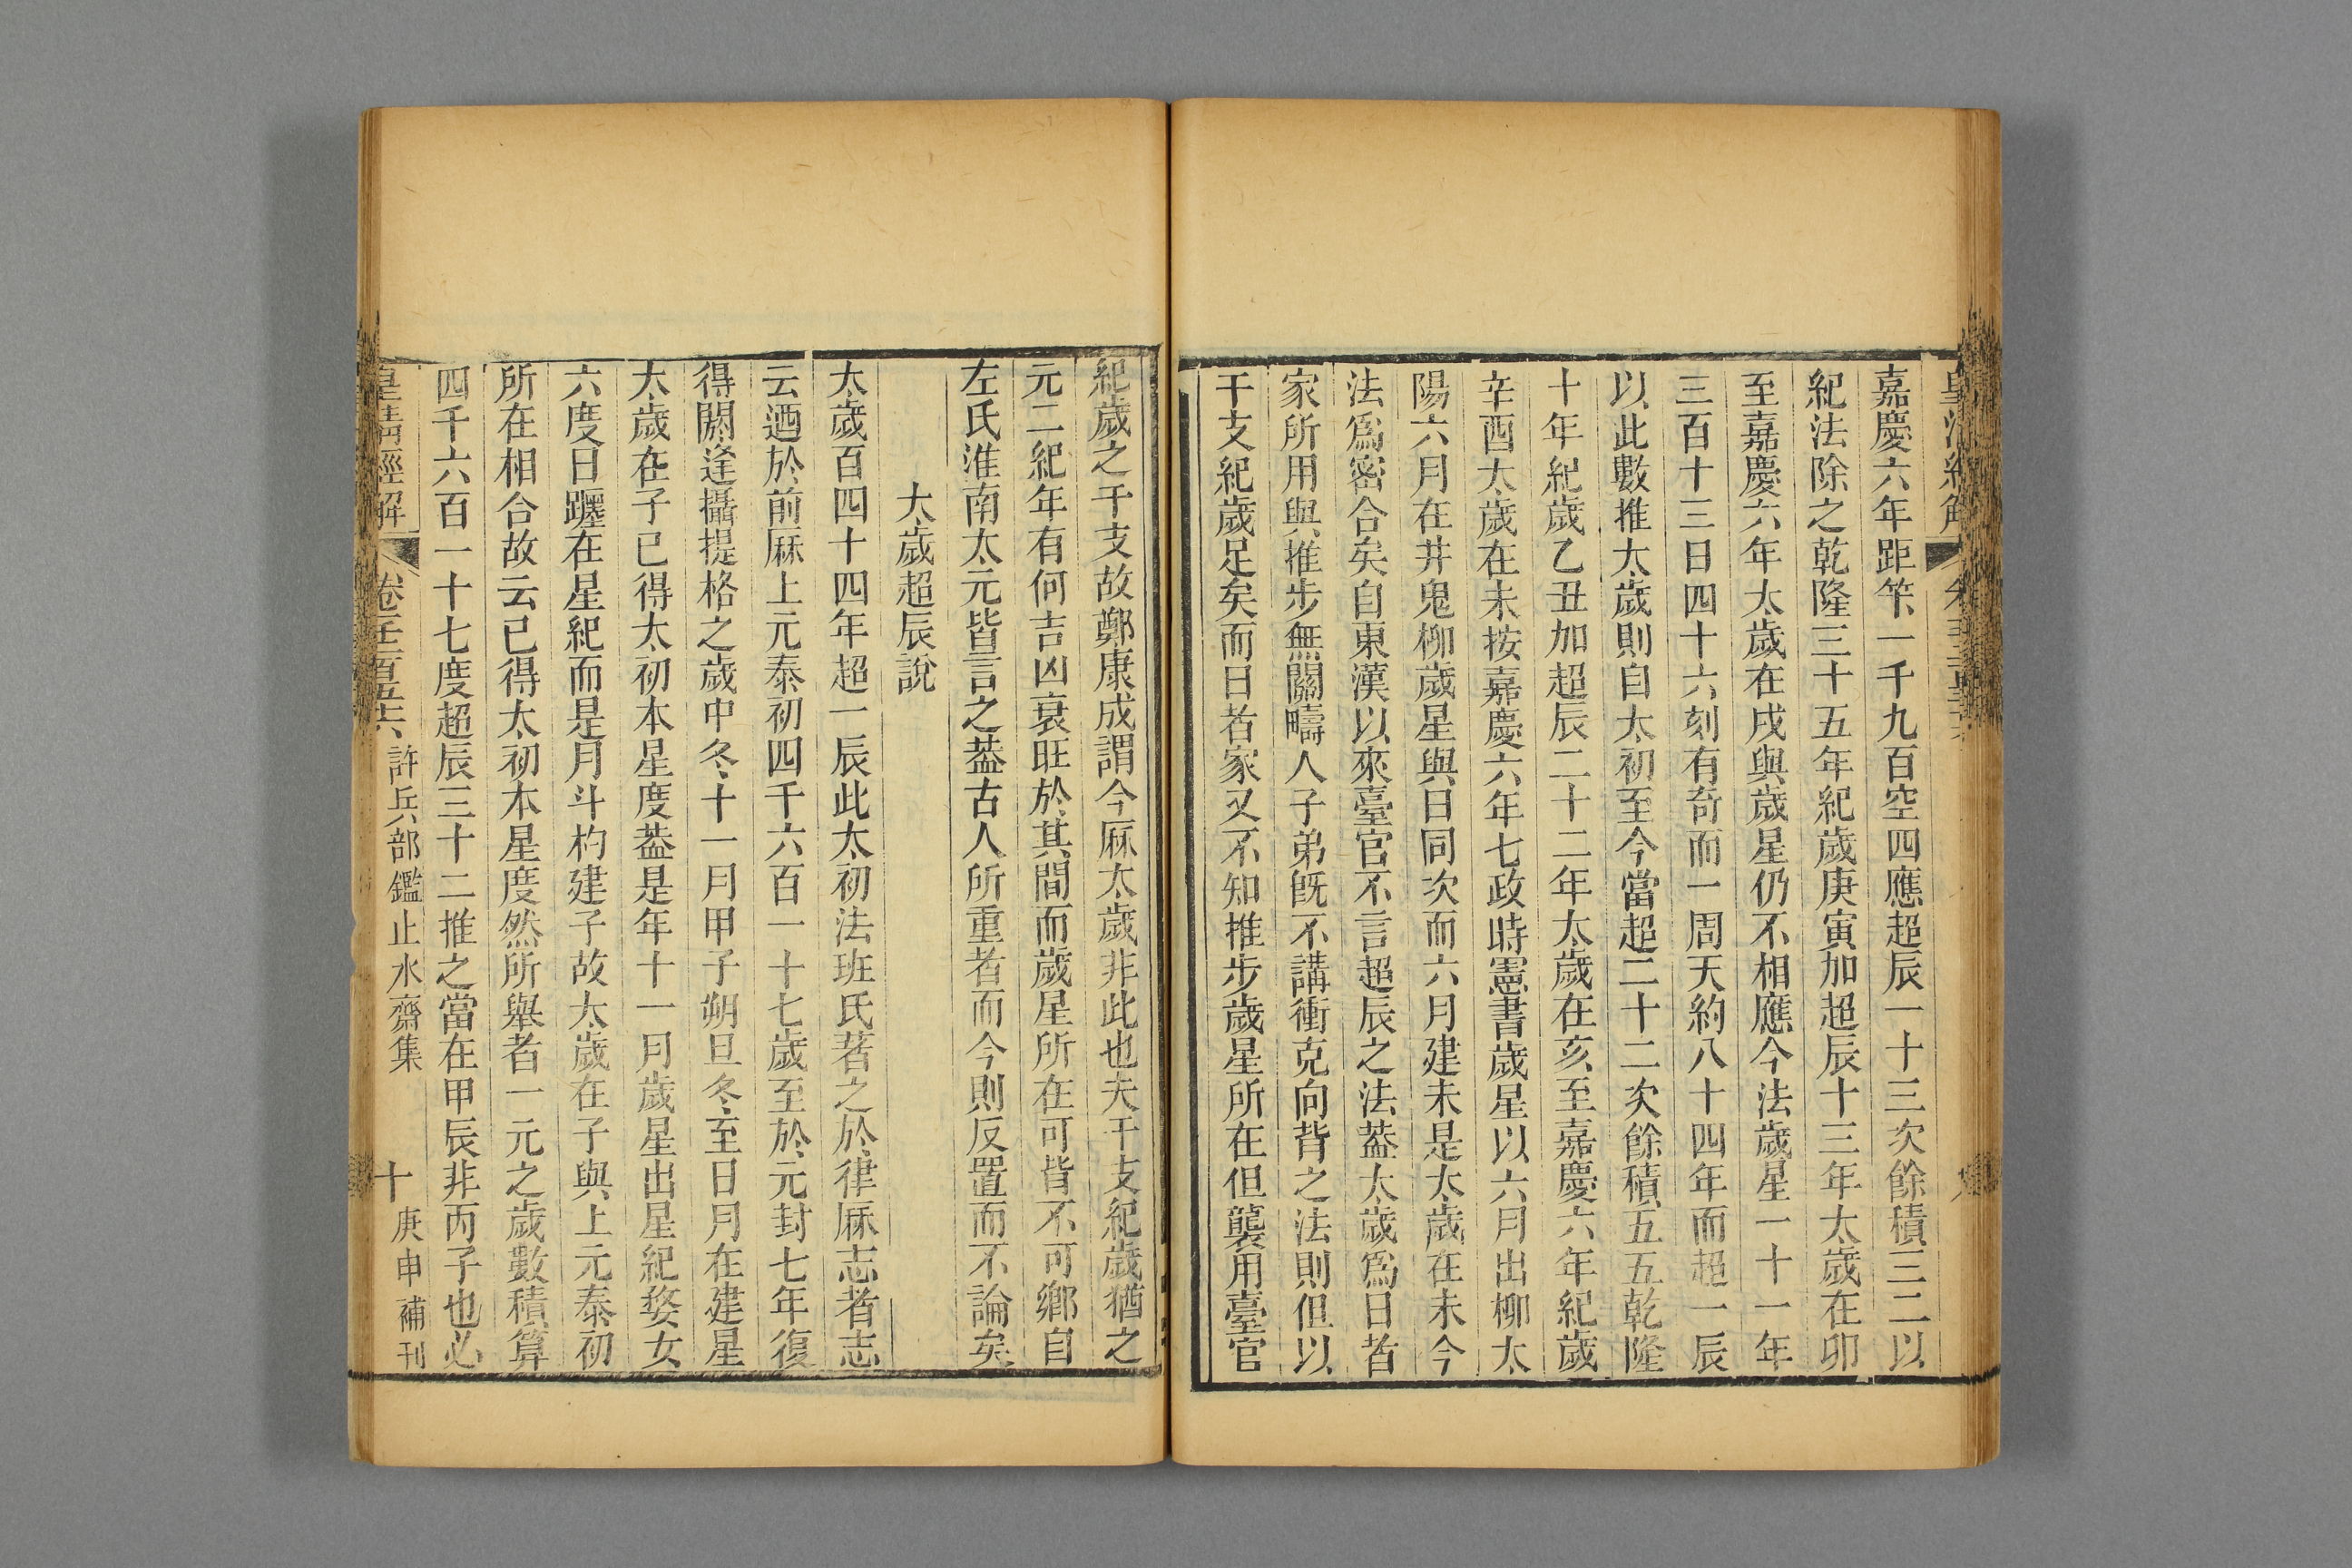 嘉慶六年距筭一千九百空四應超辰一十三次餘積三二以
紀法除之乾隆三十五年紀歲庚寅加超辰十三年太歲在卯
至嘉慶六年太歲在戌與歲星仍不相應今法歲星一十一年
三百十三日四十六刻有奇而一周天約八十四年而超一辰
以此數推太歲則自太初至今當超二十二次餘積五五乾隆
十年紀歲乙丑加超辰二十二年太歲在亥至嘉慶六年紀歲
辛酉太歲在未按嘉慶六年七政時憲書歲星以六月出柳太
陽六月在井鬼柳歲星與日同次而六月建未是太歲在未今
法爲密合矣自東漢以來臺官不言超辰之法葢太歲爲日者
家所用與推步無關疇人子弟旣不講衝克向背之法則但以
干支紀歲足矣而日者家又不知推步歲星所在但襲用臺官
紀歲之干支故鄭康成謂今厤太歲非此也夫干支紀歲猶之
元二紀年有何吉凶衰旺於其間而歲星所在可皆不可鄉自
左氏淮南太元皆言之葢古人所重者而今則反置而不論矣
太歲超辰說
太歲百四十四年超一辰此太初法班氏著之於律厤志者志
云迺於前厤上元泰初四千六百一十七歲至於元封七年復
得閼逢攝提格之歲中冬十一月甲子朔旦冬至日月在建星
太歲在子已得太初本星度葢是年十一月歲星出星紀婺女
六度日躔在星紀而是月斗杓建子故太歲在子與上元泰初
所在相合故云已得太初本星度然所舉者一元之歲數積算
四千六百一十七度超辰三十二推之當在甲辰非丙子也必
皇清經解 卷壬百五六 許兵部鑑止水齋集 十 庚申補刊